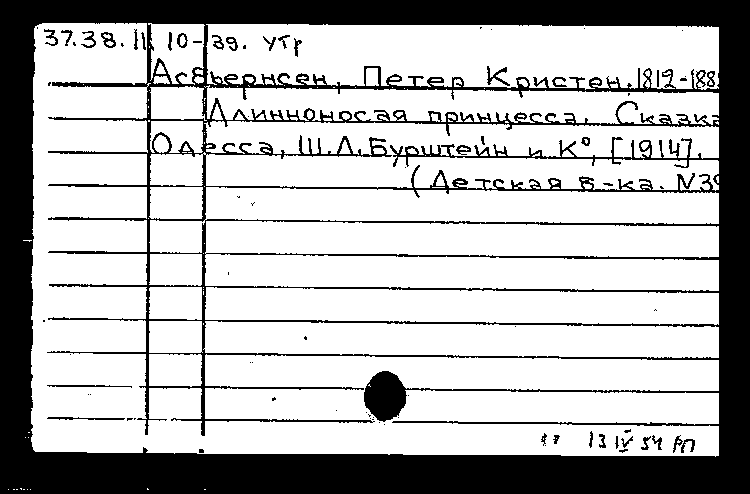 37.38.II 10-39. утр
Асбьернсен, Петер Кристен. 1812-188
Длинноносая принцесса. Сказка
Одесса, Ш.Л.Бурштейн и К°, [1914].
(Детская б-ка. N39
13 IV 54